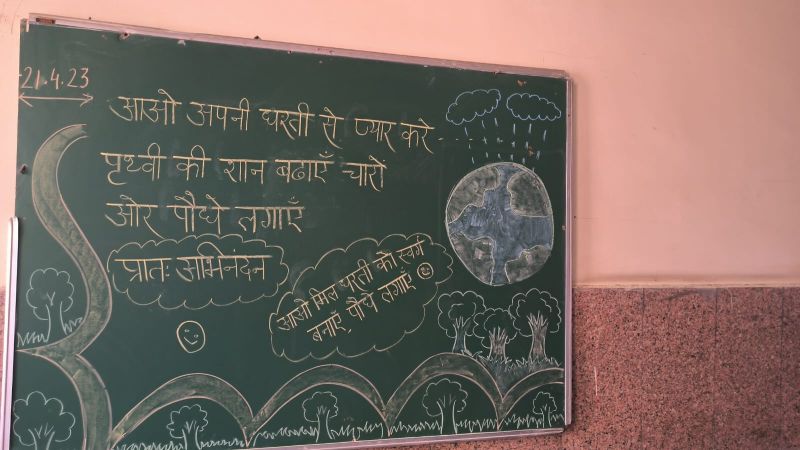 21.4.23
आओ अपनी धरती से प्यार करे
पृथ्वी की शान बढाएँ चारों
ओर पौधे लगाएँ
प्रातः अभिनंदन
आओ मिल धरती को स्वर्ग
बनाएँ, पौधे लगाएँ